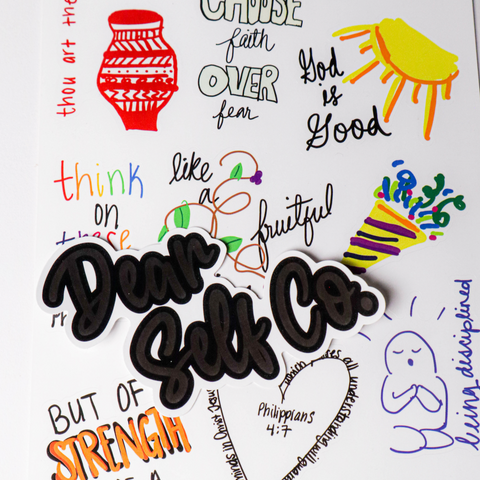 thou art the
CHOOSE
faith
OVER
fear
God
is
Good
think
on
these
like
a
fruitful
Dear
Self Co.
BUT OF
STRENGTH
A
which
all understanding will
minds in
Philippians
4:7
being disciplined